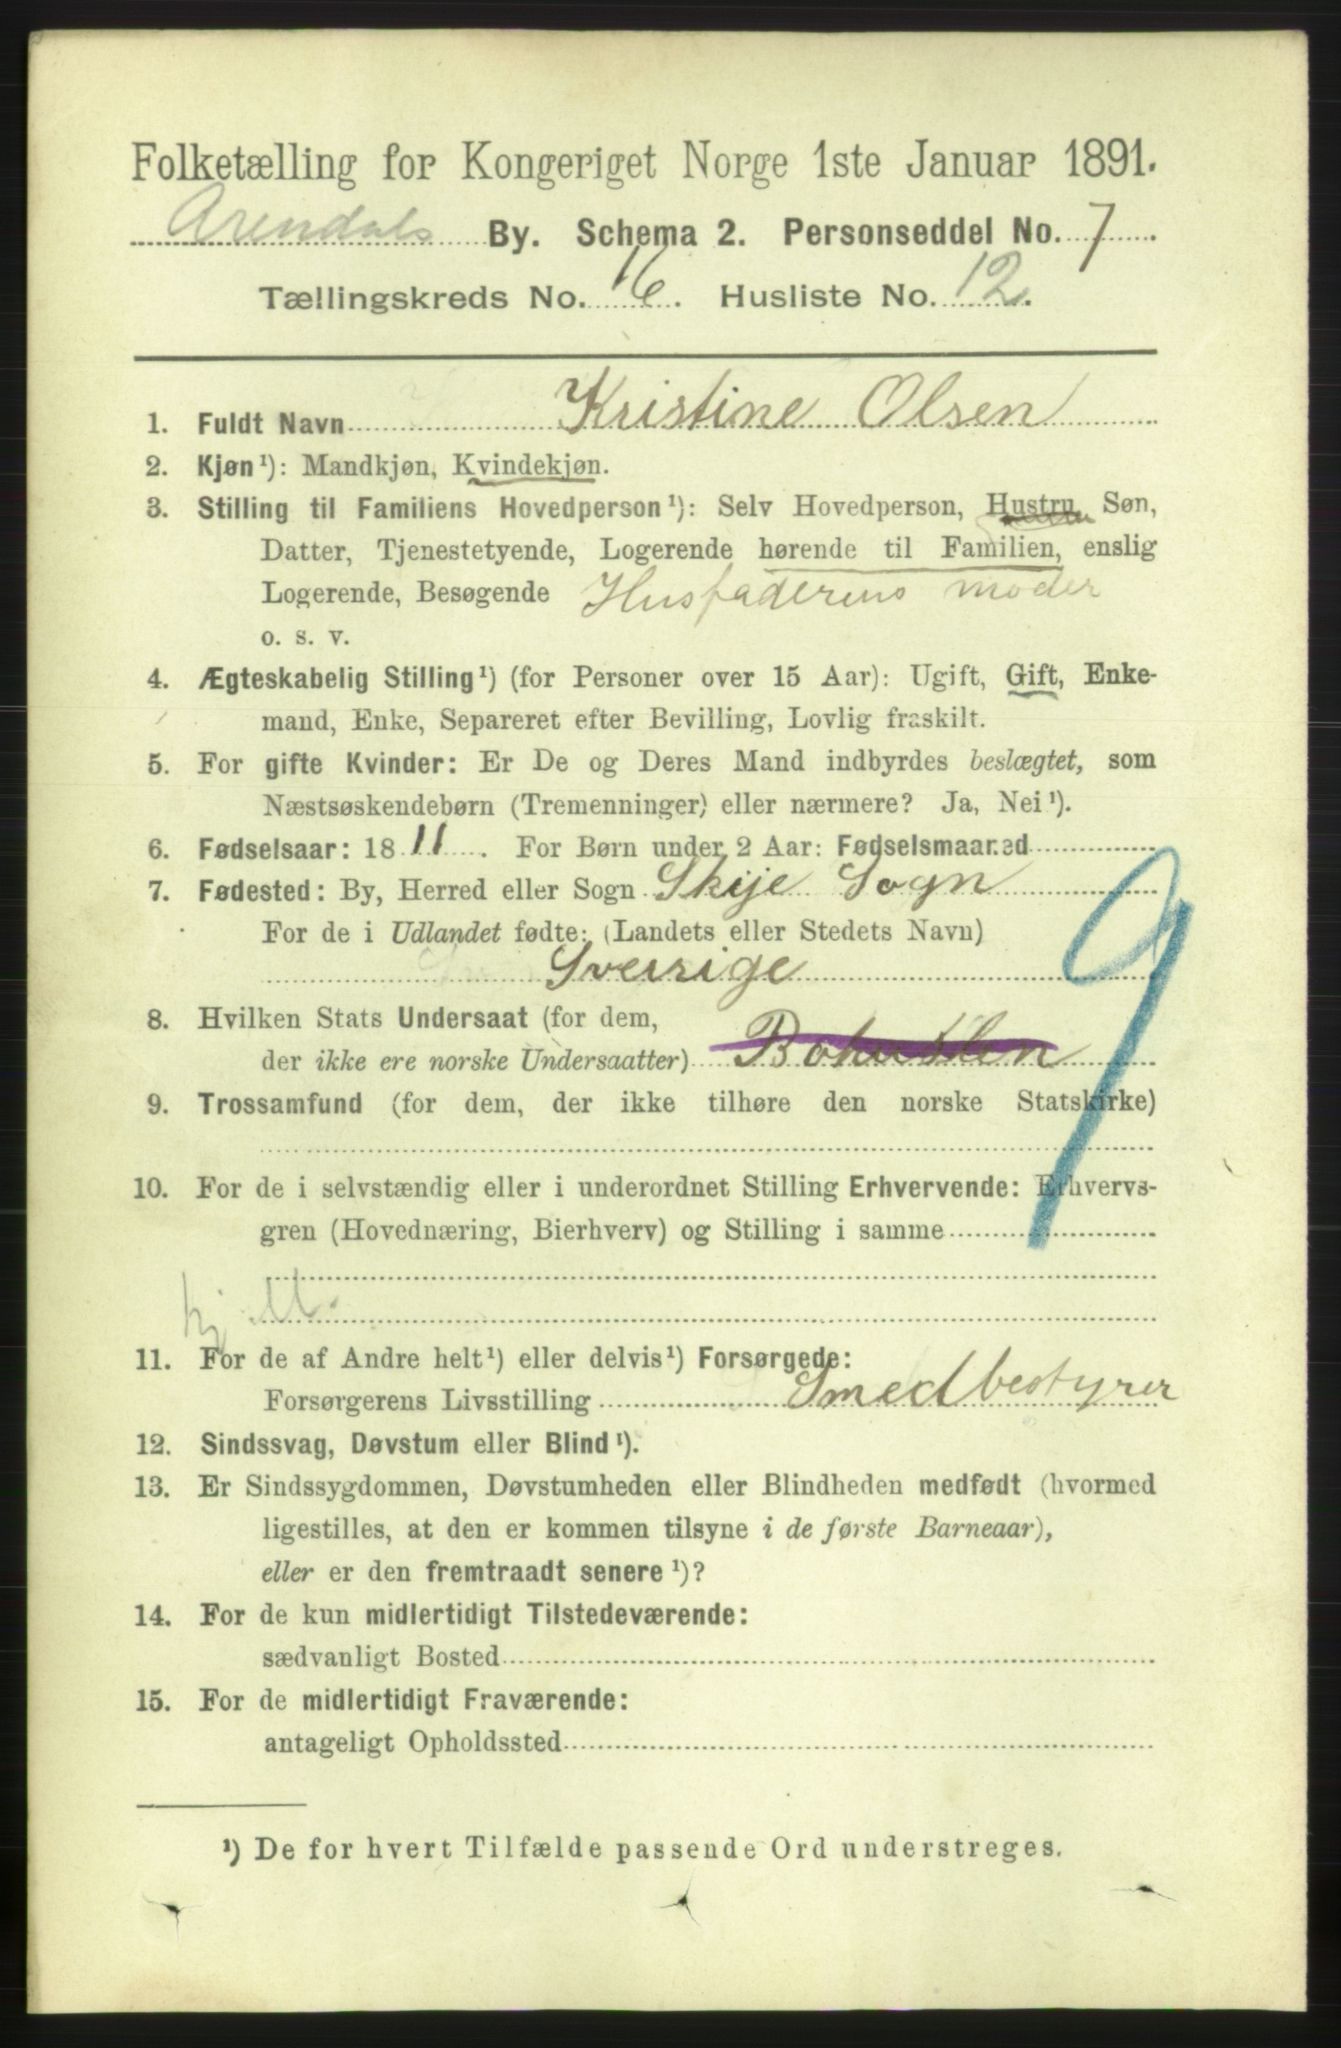 Folketælling for Kongeriget Norge 1ste Januar 1891.
Arendals By. Schema 2. Personseddel No. 7
Tællingskreds No. 16. Husliste No. 12.
1. Fuldt Navn Kristine Olsen
2. Kjøn¹): Mandkjøn, Kvindekjøn.
3. Stilling til Familiens Hovedperson¹): Selv Hovedperson, Hustru, Søn,
Datter, Tjenestetyende, Logerende hørende til Familien, enslig
Logerende, Besøgende Husfaderens moder
o. s. v.
4. Ægteskabelig Stilling¹) (for Personer over 15 Aar): Ugift, Gift, Enke-
mand, Enke, Separeret efter Bevilling, Lovlig fraskilt.
5. For gifte Kvinder: Er De og Deres Mand indbyrdes beslægtet, som
Næstsøskendebørn (Tremenninger) eller nærmere? Ja, Nei¹).
6. Fødselsaar: 1811. For Børn under 2 Aar: Fødselsmaaned
7. Fødested: By, Herred eller Sogn Skije Sogn
For de i Udlandet fødte: (Landets eller Stedets Navn)
Sverrige
8. Hvilken Stats Undersaat (for dem,
der ikke ere norske Undersaatter) Bohuslen
9. Trossamfund (for dem, der ikke tilhøre den norske Statskirke)
10. For de i selvstændig eller i underordnet Stilling Erhvervende: Erhvervs-
gren (Hovednæring, Bierhverv) og Stilling i samme
11. For de af Andre helt¹) eller delvis¹) Forsørgede:
Forsørgerens Livsstilling Smedbestyrer
12. Sindssvag, Døvstum eller Blind¹).
13. Er Sindssygdommen, Døvstumheden eller Blindheden medfødt (hvormed
ligestilles, at den er kommen tilsyne i de første Barneaar),
eller er den fremtraadt senere¹)?
14. For de kun midlertidigt Tilstedeværende:
sædvanligt Bosted
15. For de midlertidigt Fraværende:
antageligt Opholdssted
¹) De for hvert Tilfælde passende Ord understreges.
9